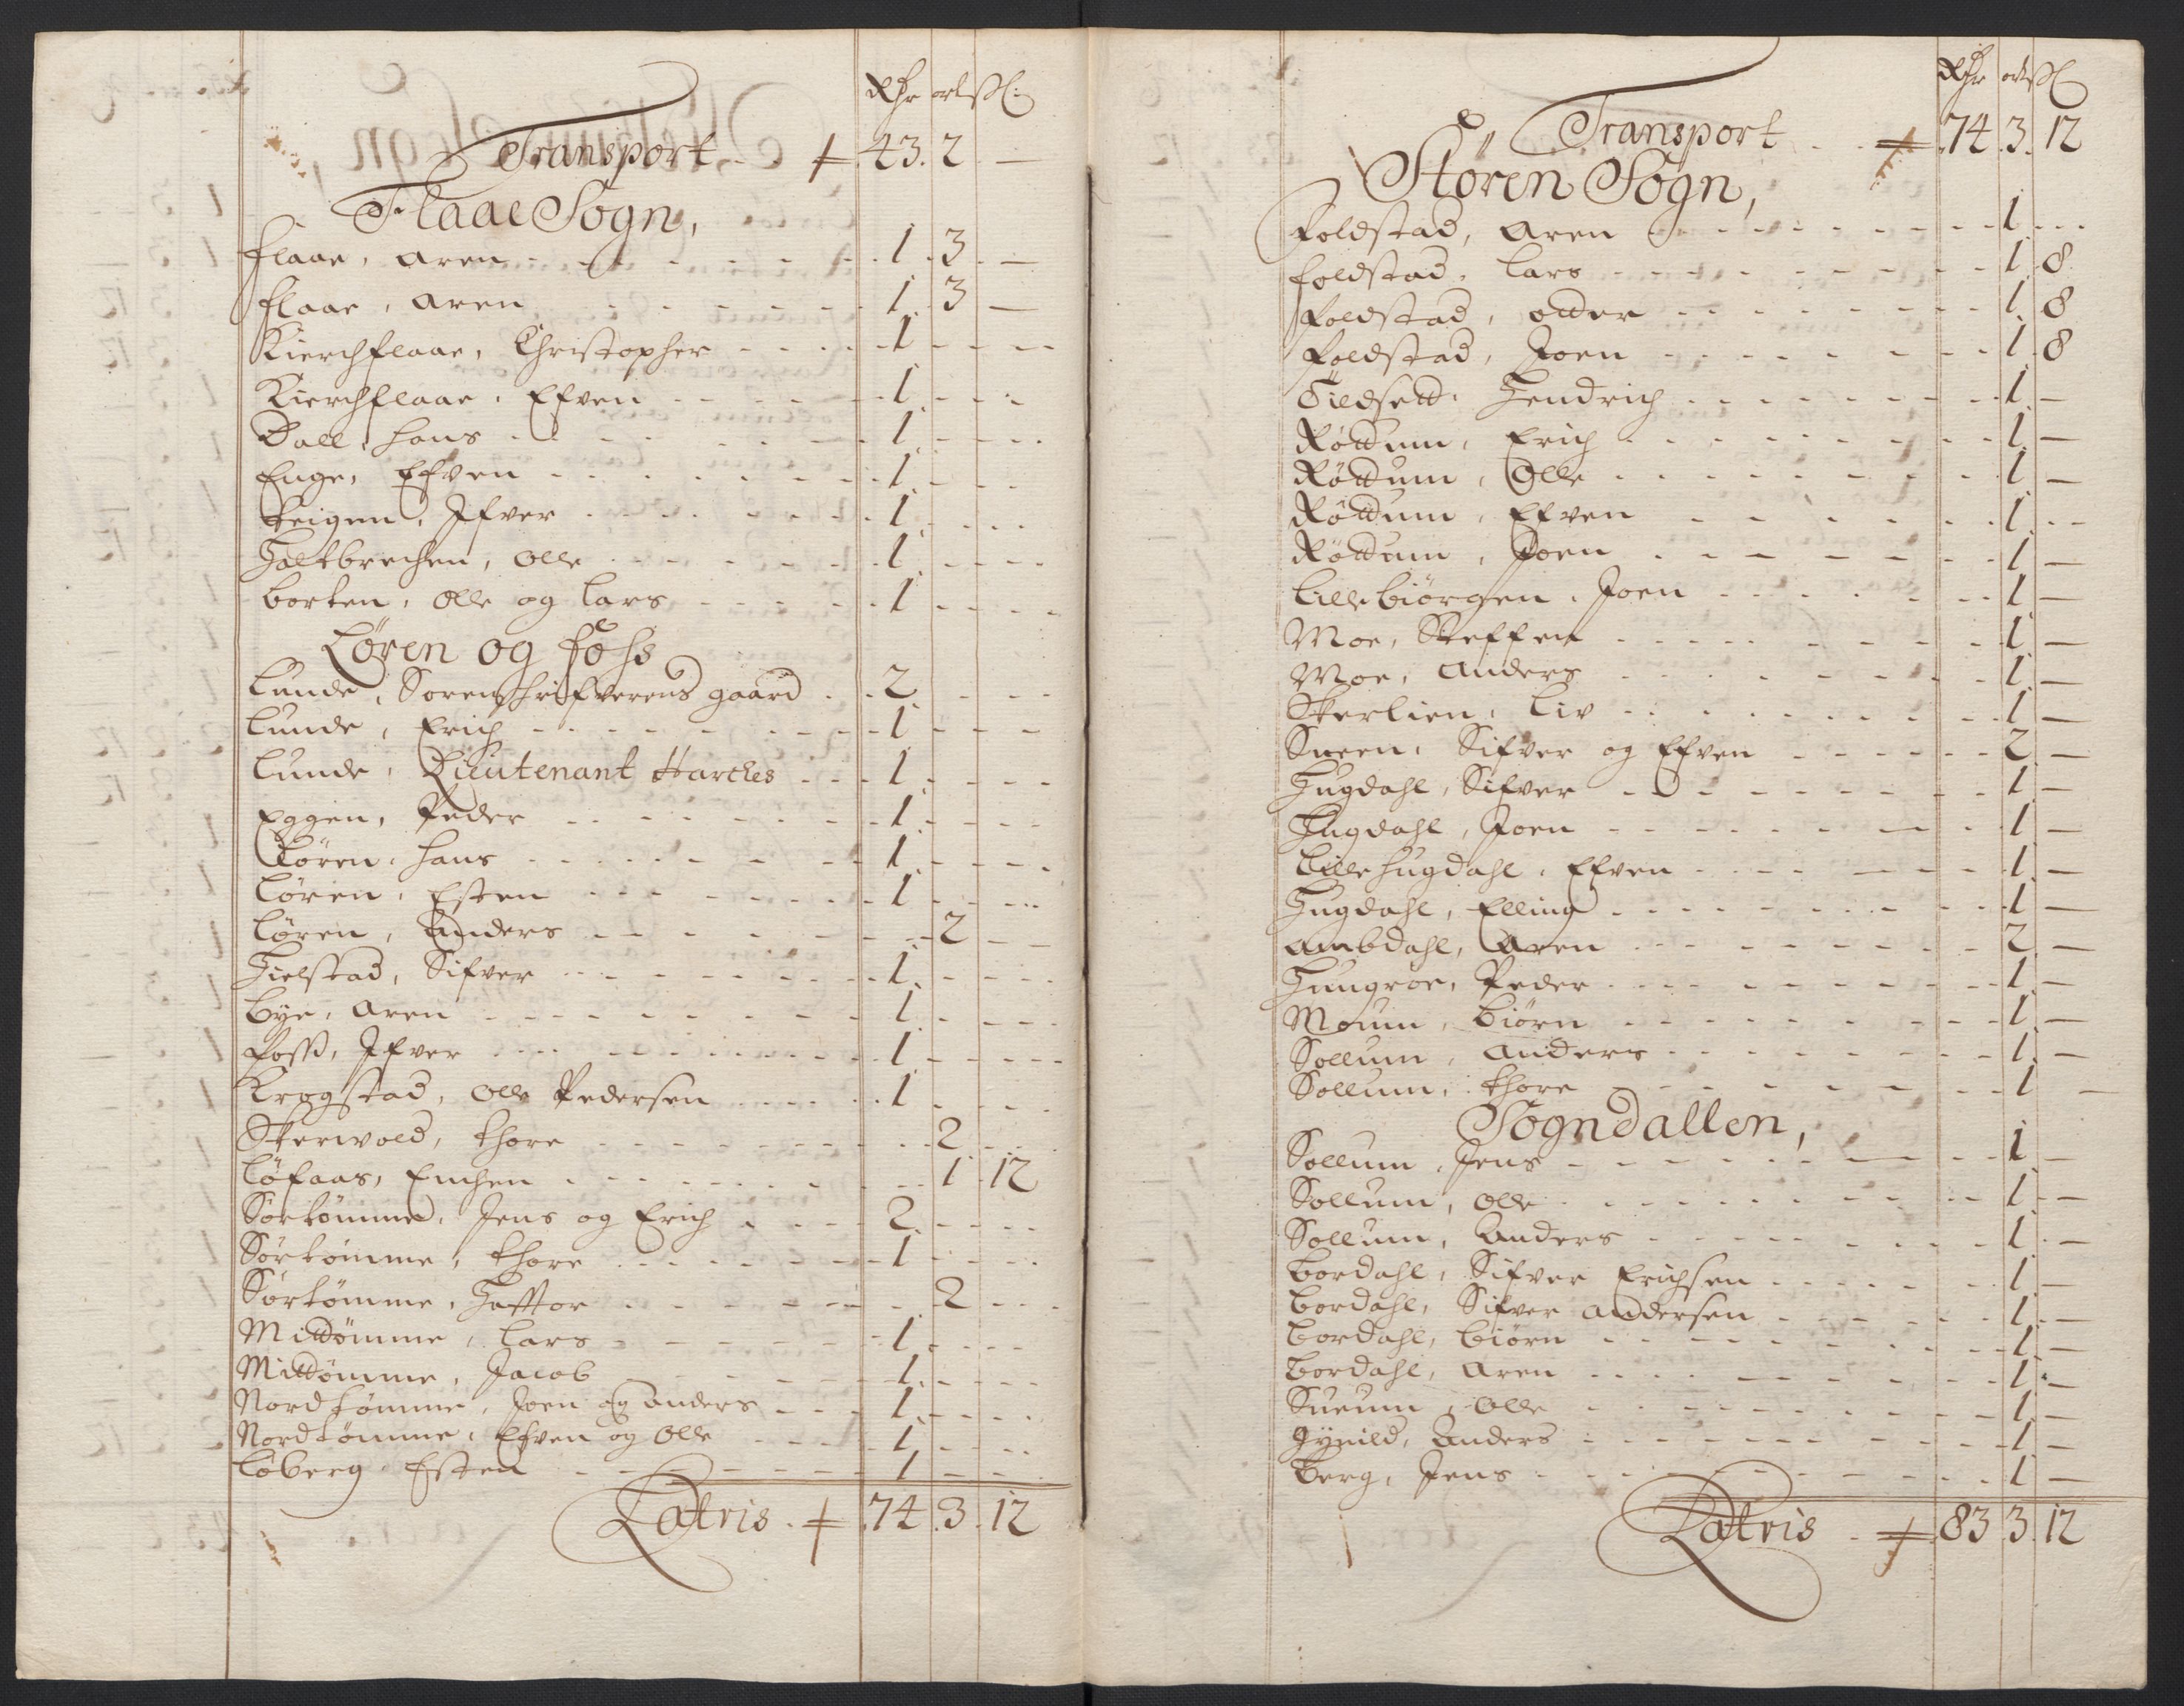 Rdr ort ſſ:
Transport 43. 2 —
Flaae Sogn,
Flaae, Aren 1. 3. —
Flaae, Aren 1. 3 —
Kierchflaae, Christopher 1
Kierchflaae, Efven 1
Dall, Hans 1
Enge, Efven 1
Teigen, Ifver 1
Haltbrechen, Olle 1
Borten, Olle og Lars 1
Løren og Foss
Lunde, Sorenschrifverens gaard 2
Lunde, Erich 1
Lunde, Lieutenant Harches 1
Eggen, Peder 1
Løren, Hans 1
Løren, Esten 1
Løren, Anders 2
Hielstad, Sifver 1
Bye, Aren 1
Foss, Ifver 1
Krogstad, Olle Pedersen 1
Skervold, Thore 2
Løfaas, Enchen 1. 12
Sørtømme, Jens og Erich 2
Sørtømme, Thore 1
Sørtømme, Haftor 2
Mittømme, Lars 1
Mittømme, Jacob 1
Nordtømme, Joen og Anders 1
Nordtømme, Efven og Olle 1
Løberg, Esten 1
Latris 74. 3. 12
Rdr ort ſſ
Transport 74. 3. 12
Støren Sogn,
Foldstad, Aren 1
Foldstad, Lars 1. 8
Foldstad, Odder 1. 8
Foldstad, Joen 1. 8
Tildsett, Hendrich 1 —
Røttum, Erich 1 —
Røttum, Olle 1 —
Røttum, Efven 1
Røttum, Joen 1 —
Lillebiørgen, Joen 1 —
Moe, Steffen 1 —
Moe, Anders 1 —
Skerlien, Liv 1 —
Sneen, Sifver og Efven 2 —
Hugdahl, Sifver 1 —
Hugdahl, Joen 1 —
Lille Hugdahl, Efven 1 —
Hugdahl, Elling 1 —
Ambdahl, Aren 2 —
Hungroe, Peder 1 —
Moum, Biørn 1 —
Sollum, Anders 1 —
Sollum, Thore 1 —
Sogndallen,
Sollum, Jens 1 —
Sollum, Olle 1 —
Sollum, Anders 1 —
Bordahl, Sifver Erichsen 1 —
Bordahl, Sifver Andersen 1 —
Bordahl, Biørn 1 —
Bordahl, Aren 1 —
Sueum, Olle 1 —
Gynild, Anders 1 —
Berg, Jens 1 —
Latris 83 3. 12